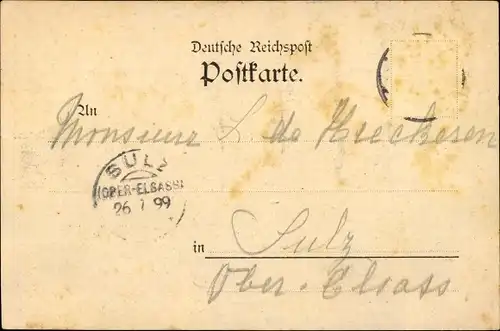 Deutsche Reichspost
Postkarte.
An
Monsieur L de Heeckeren
SULZ
(OBER-ELSASS)
26 7 99
in
Sulz
Ober-Elsass